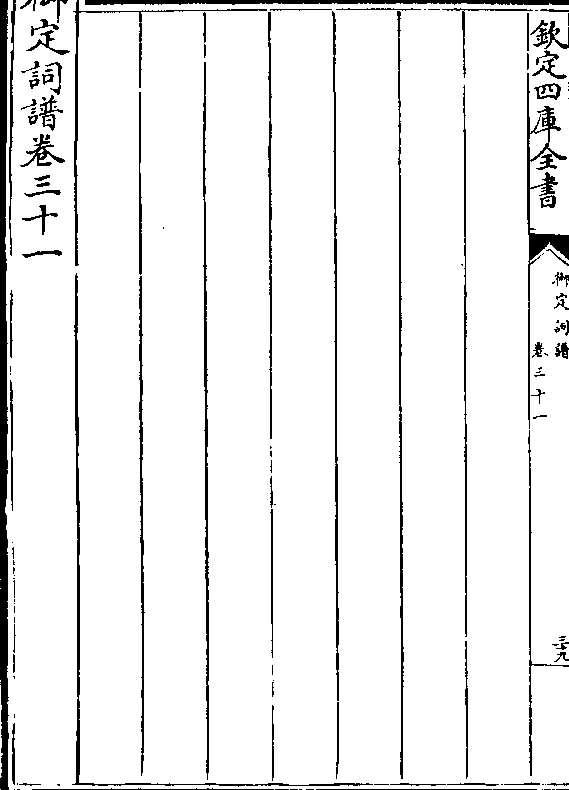 欽定四庫全書
御定詞譜
卷三十一
三十九
御定詞譜卷三十一